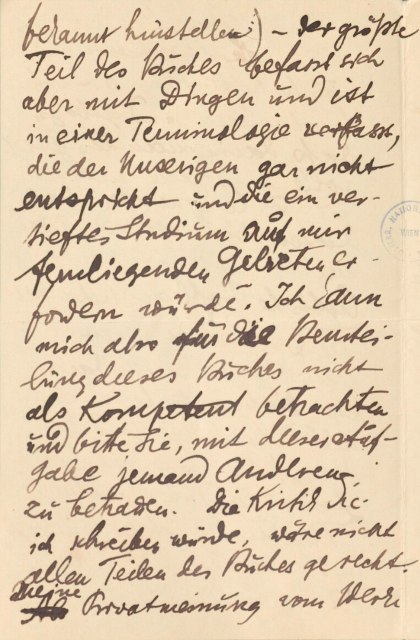 bekannt hinstellen) – der größte
Teil des Buches befasst sich
aber mit Dingen und ist
in einer Terminologie verfasst,
die der Unserigen gar nicht
entspricht und die ein ver-
tieftes Studium auf mir
fernliegenden Gebieten er-
fordern würde. Ich kann
mich also für die Beurtei-
lung dieses Buches nicht
als Kompetent betrachten
und bitte Sie, mit dieser Auf-
gabe jemand Anderen
zu betrauen. Die Kritik die
ich schreiben würde, wäre nicht
allen Teilen des Buches gerecht.
Meine
Privatmeinung vom Werk
WIEN